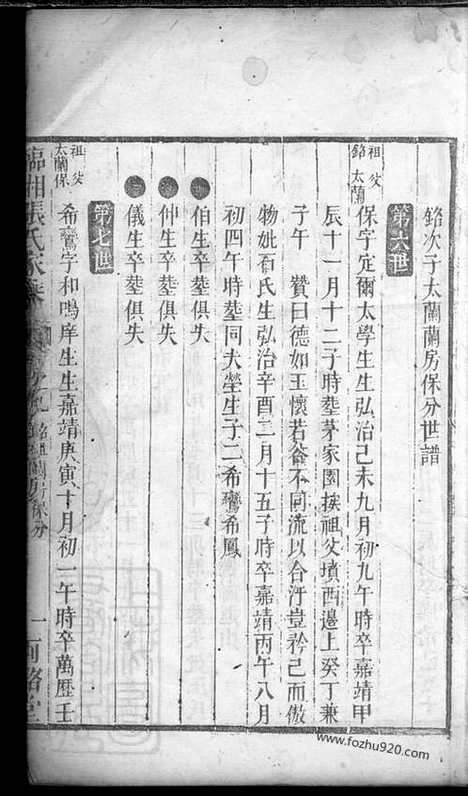 銘次子太蘭蘭房保分世譜
第六世
祖 銘
父 太蘭
保字定爾太學生生弘治己未九月初九午時卒嘉靖甲
辰十一月十二子時塟茅家園挨祖父墳酉邊上癸丁兼
子午 贊曰德如玉懷若谷不同流以合汙豈矜己而傲
物妣石氏生弘治辛酉二月十五子時卒嘉靖丙午八月
初四午時塟同夫塋生子二希鸞希鳳
伯生卒塟俱失
仲生卒塟俱失
儀生卒塟俱失
第七世
祖 太蘭
父 保
希鸞字和鳴庠生生嘉靖庚寅十月初一午時卒萬歷壬
臨湘張氏家乘
銘祖蘭房保分
www.fozhu920.com